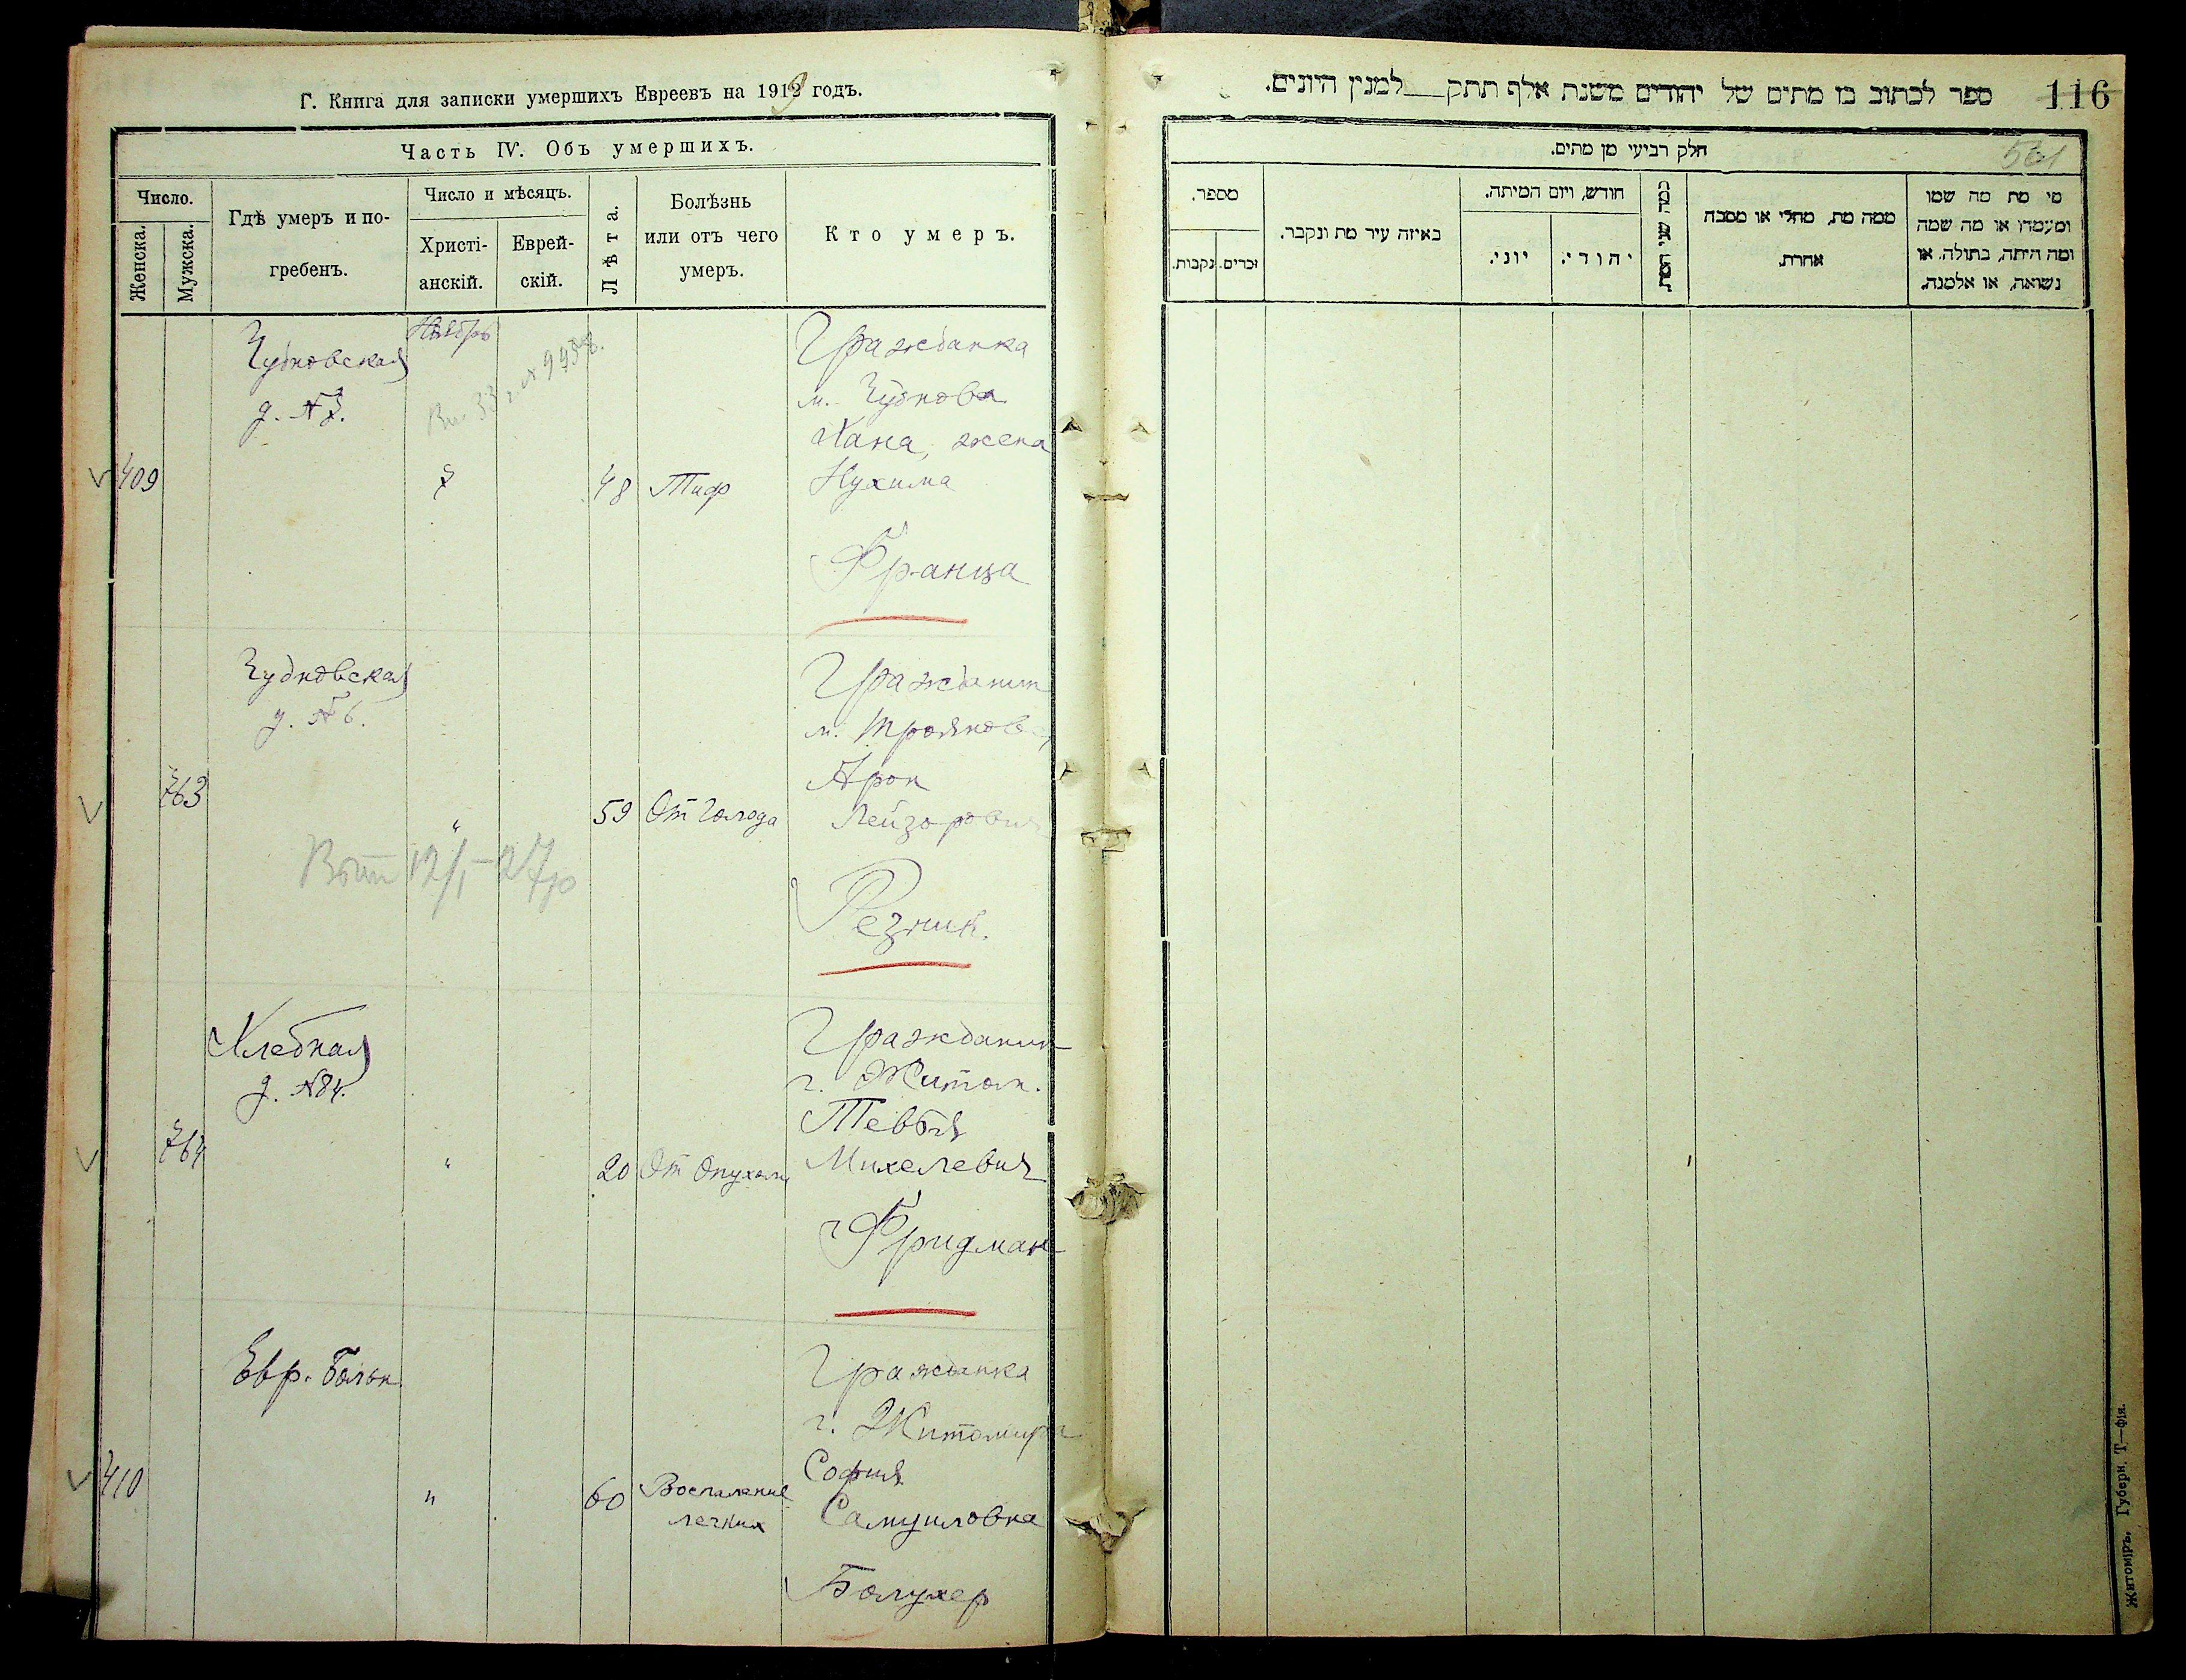 Г. Книга для записки умершихъ Евреевъ на 1919 годъ.
Часть IV. Объ умершихъ.
Число.
Женска.
Мужска.
Гдѣ умеръ и по-
гребенъ.
Число и мѣсяцъ.
Христі-
анскій.
Еврей-
скій.
Лѣта.
Болѣзнь
или отъ чего
умеръ.
Кто умеръ.
Чудновская
д. №3.
Ноябрь
409
7
48
Тиф
Гражданка
м. Чуднова
Хана, жена
Нухима
Франца
Чудновская
д. №6.
763
"
59
От Голода
Гражданин
м. Троянова
Арон
Лейзорович
Резник.
12/I-27
Хлебная
д. №84.
764
"
20
От Опухоли
Гражданин
г. Житом.
Тевья
Михелевич
Фридман
Евр. Больн
410
"
60
Воспаление
легких
Гражданка
г. Житомира
София
Самуиловна
Болухер
116
ספר לכתוב בו מתים של יהודים משנת אלף תתק__למנין היונים.
561
חלק רביעי מן מתים.
מספר.
זכרים.
נקבות.
באיזה עיר מת ונקבר.
חודש, ויום המיתה.
יוני.
יהודי.
כמה שני המת.
ממה מת, מחלי או מסבה
אחרת.
מי מת מה שמו
ומעמדו או מה שמה
ומה היתה, בתולה, או
נשואה, או אלמנה.
Житоміръ, Губерн. Т—фія.